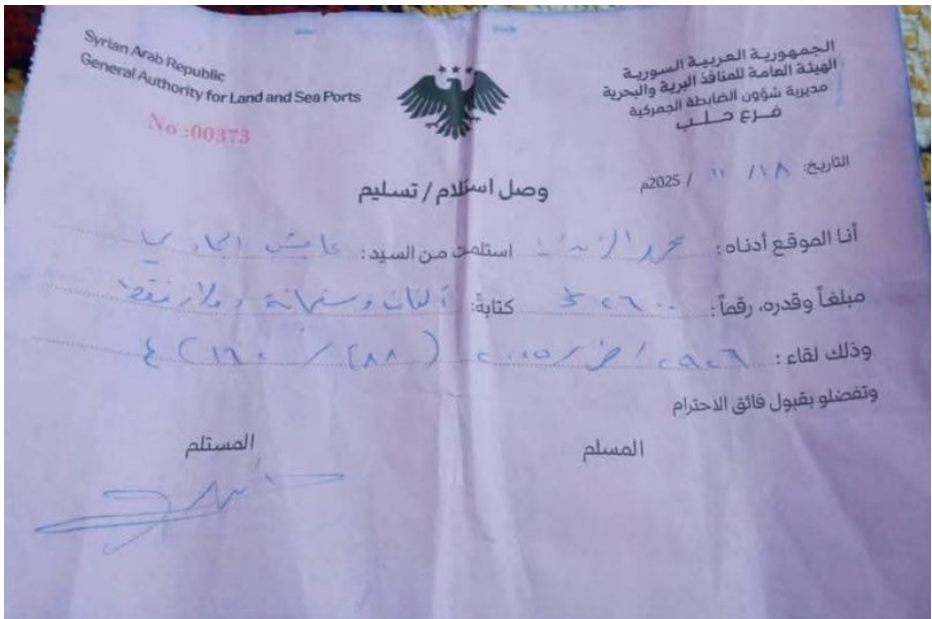 Syrian Arab Republic
General Authority for Land and Sea Ports
No :00373
الجمهورية العربية السورية
الهيئة العامة للمنافذ البرية والبحرية
مديرية شؤون الضابطة الجمركية
فرع حلب
التاريخ: ١٨/ ١١ / 2025م
وصل استلام / تسليم
أنا الموقع أدناه: محمد استلمت من السيد: عايش
مبلغاً وقدره، رقماً: ٢٦٠٠ $ كتابةً: ألفان وستمائة دولار فقط
وذلك لقاء:
وتفضلو بقبول فائق الاحترام
المسلم
المستلم